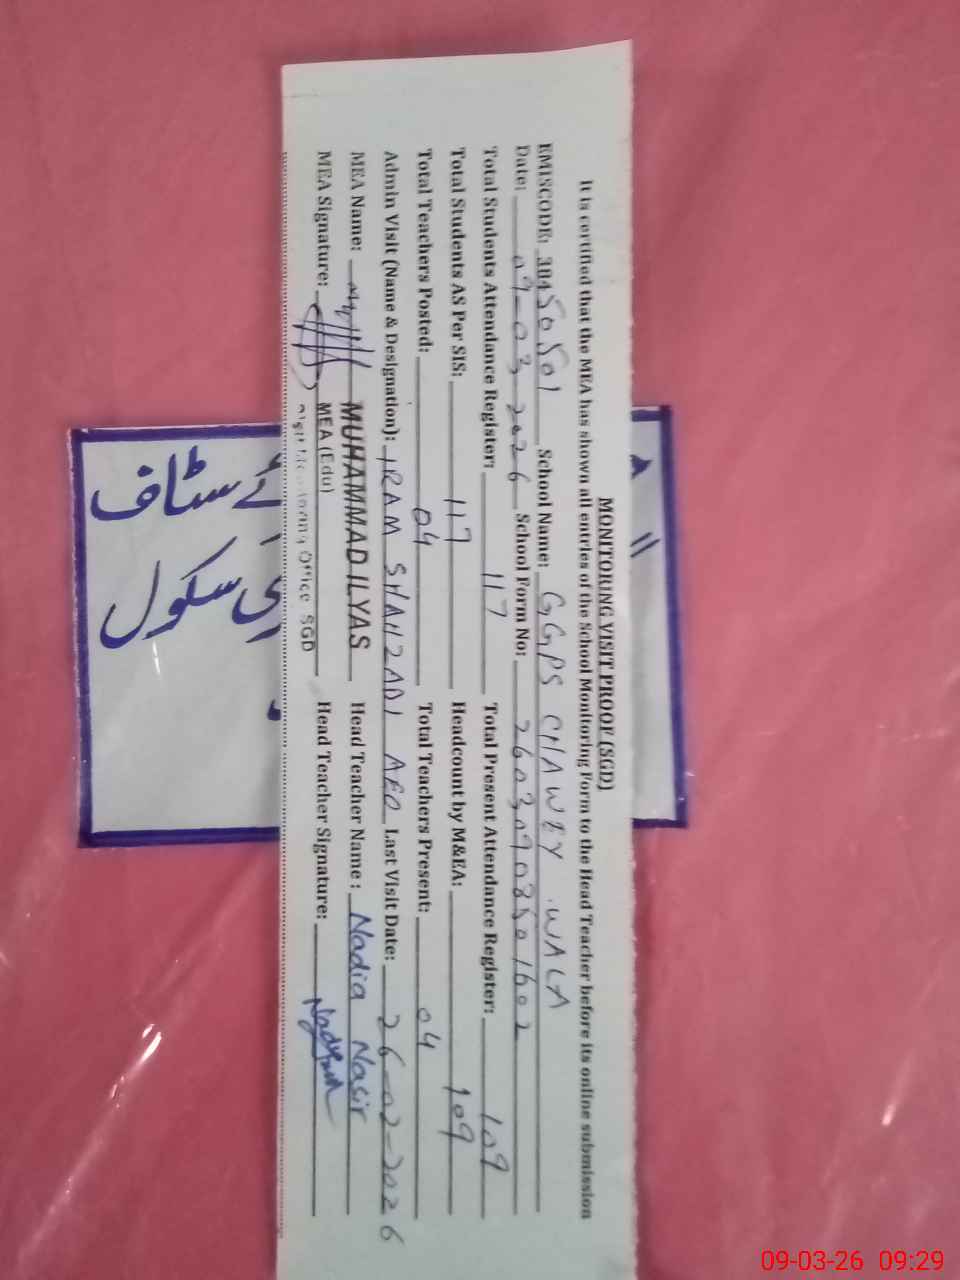 MONITORING VISIT PROOF (SGD)
It is certified that the MEA has shown all entries of the School Monitoring Form to the Head Teacher before its online submission
EMISCODE: 38450501 School Name: GGPS CHAWEY WALA
Date: 09-03-2026 School Form No: 26030908501602
Total Students Attendance Register: 117 Total Present Attendance Register: 109
Total Students AS Per SIS: 117 Headcount by M&EA: 109
Total Teachers Posted: 04 Total Teachers Present: 04
Admin Visit (Name & Designation): IRAM SHAHZADI AEO Last Visit Date: 26-02-2026
MEA Name: MUHAMMAD ILYAS Head Teacher Name: Nadia Nasir
MEA Signature: MEA (Edu) Head Teacher Signature:
Office SGD
سٹاف
سکول
09-03-26 09:29